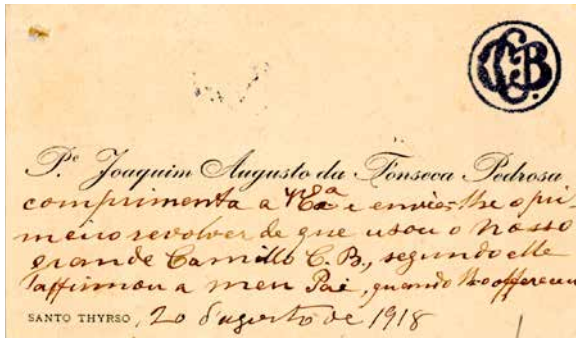 CCB
P.e Joaquim Augusto da Fonseca Pedrosa
comprimenta a V. Ex.a e envia-lhe o pri-
meiro revolver de que usou o nosso
grande Camillo C. B., segundo elle
affirmou a meu Pai, quando lh'o offereceu
SANTO THYRSO, 20 d'agosto de 1918